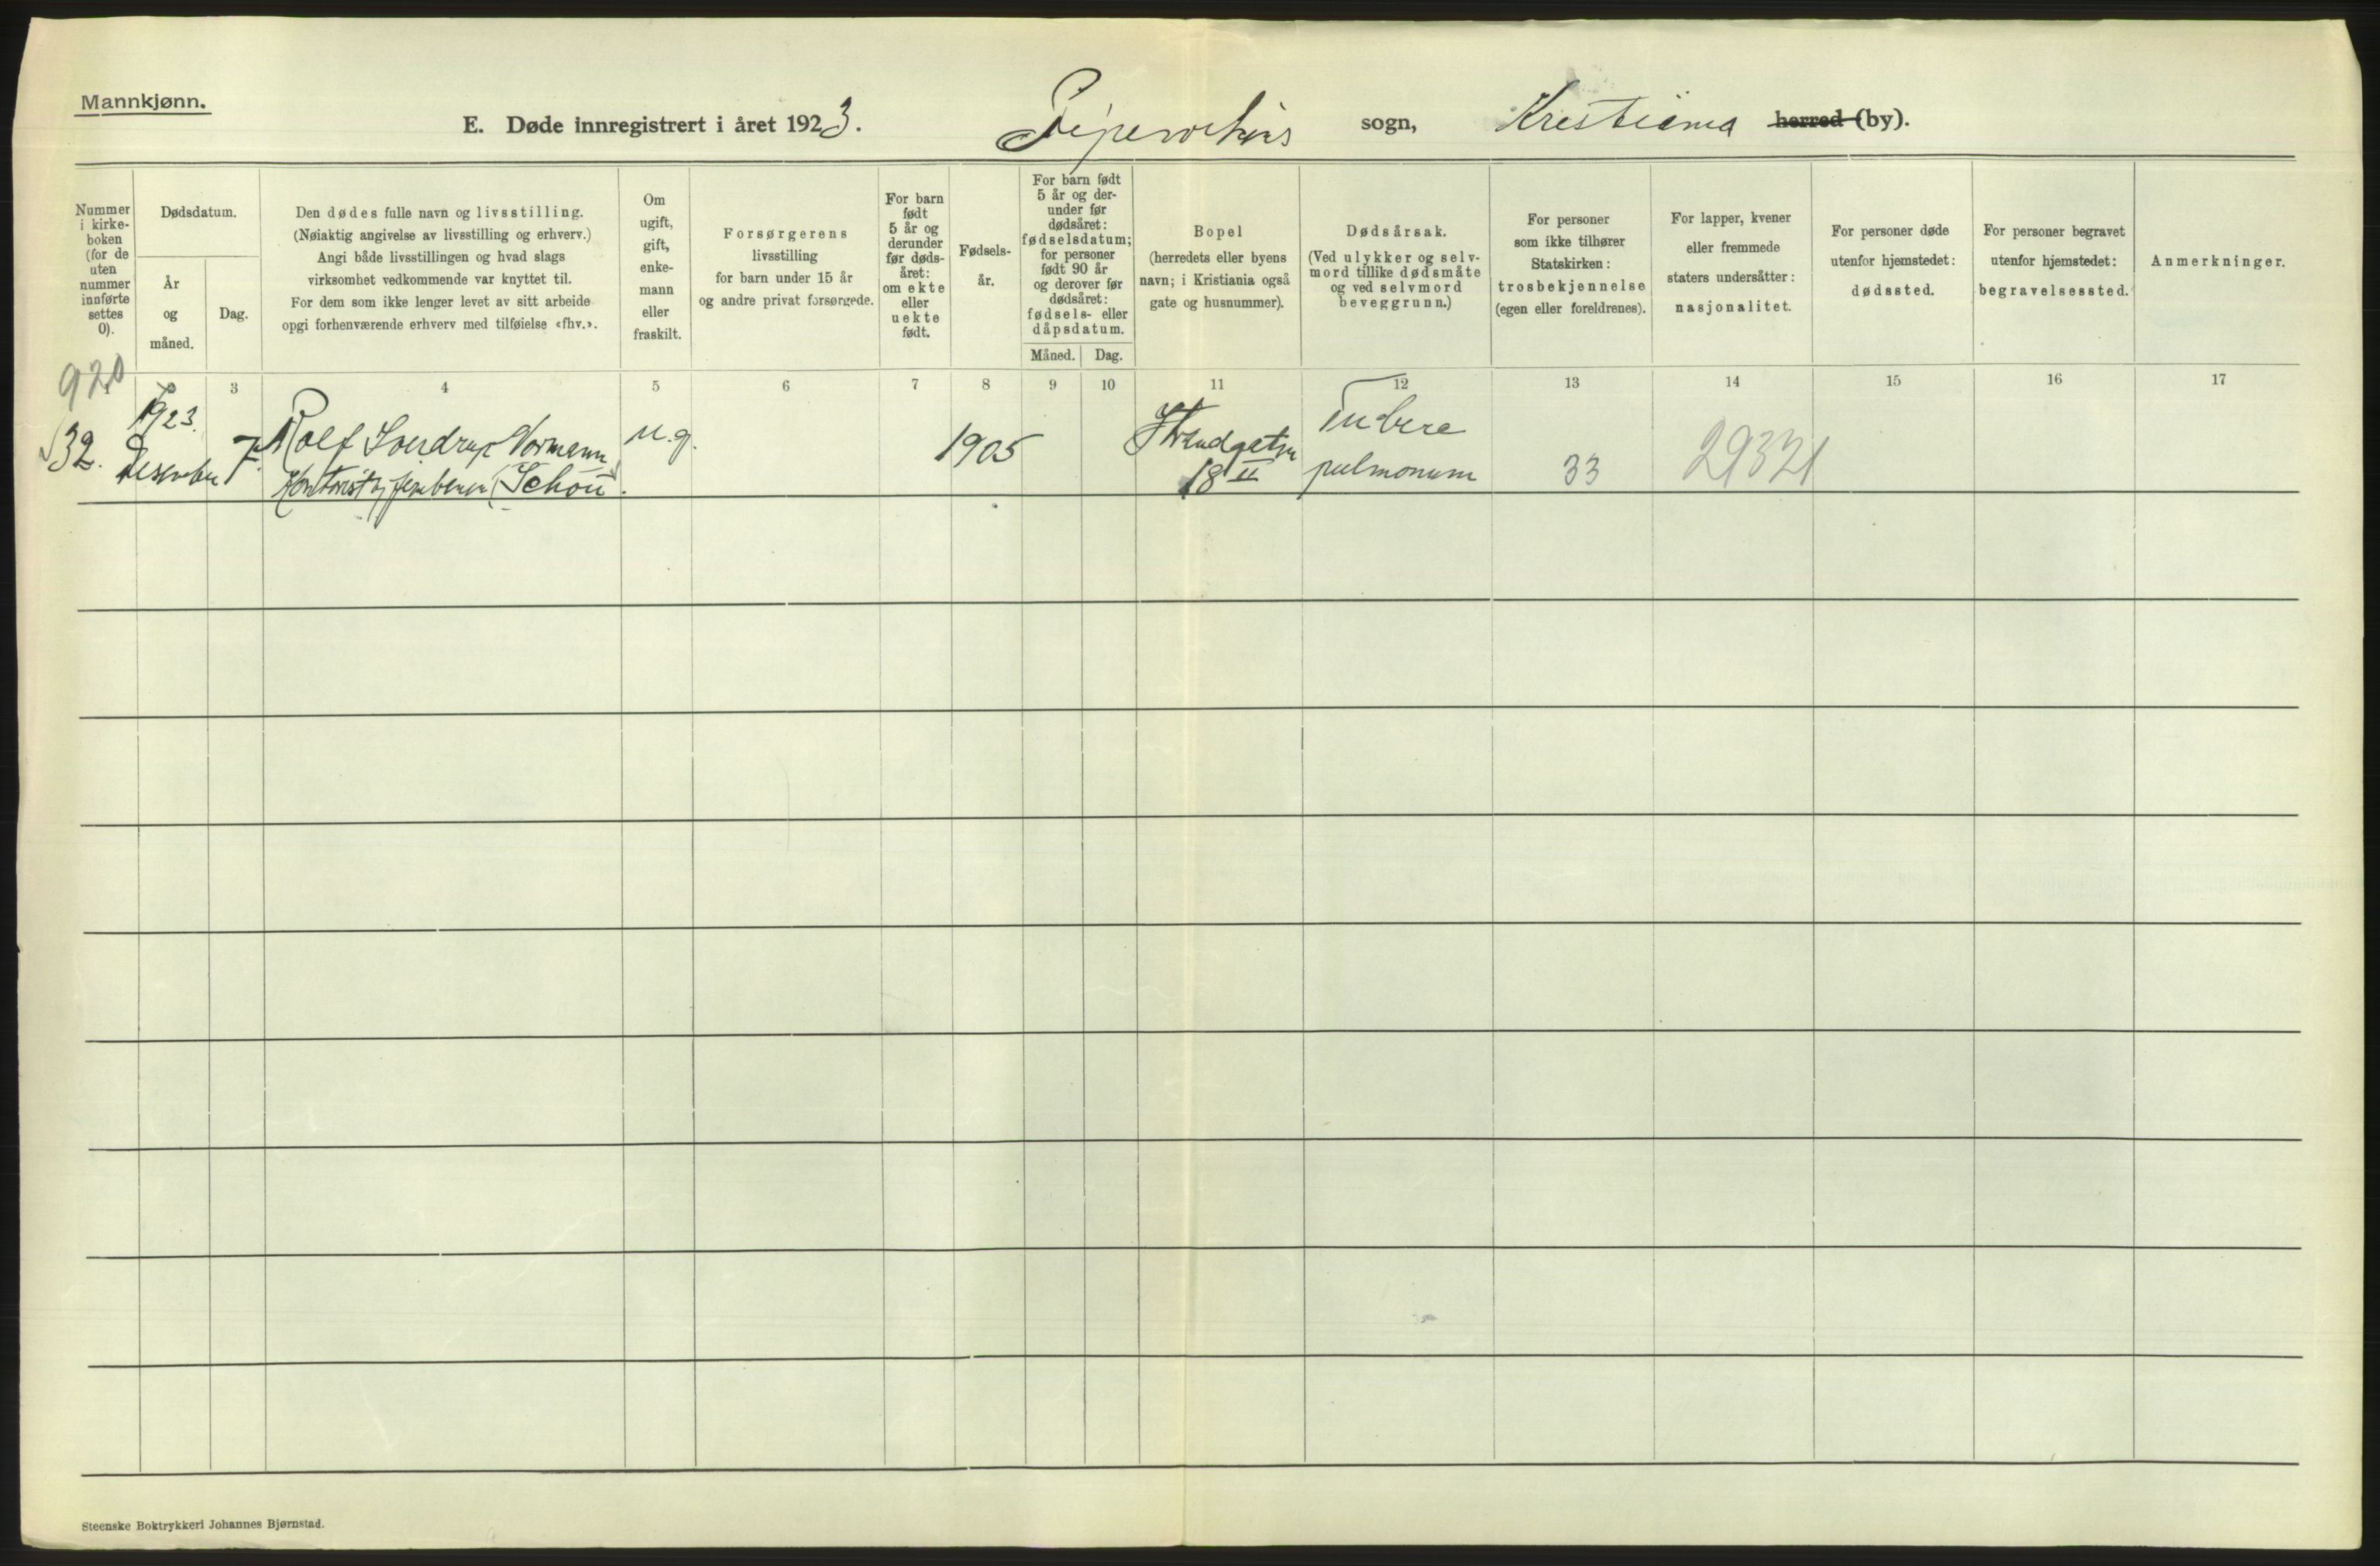 Mannkjønn.
E. Døde innregistrert i året 1923. Pipervikens sogn, Kristiania herred (by).
Nummer i kirkeboken (for de uten nummer innførte settes 0).
Dødsdatum.
År og måned.
Dag.
Den dødes fulle navn og livsstilling.
(Nøiaktig angivelse av livsstilling og erhverv.)
Angi både livsstillingen og hvad slags
virksomhet vedkommende var knyttet til.
For dem som ikke lenger levet av sitt arbeide
opgi forhenværende erhverv med tilføielse «fhv.».
Om ugift, gift, enkemann eller fraskilt.
Forsørgerens
livsstilling
for barn under 15 år
og andre privat forsørgede.
For barn født 5 år og derunder før dødsåret: om ekte eller uekte født.
Fødselsår.
For barn født 5 år og derunder før dødsåret: fødselsdatum; for personer født 90 år og derover før dødsåret: fødsels- eller dåpsdatum.
Måned. Dag.
Bopel
(herredets eller byens
navn; i Kristiania også
gate og husnummer).
Dødsårsak.
(Ved ulykker og selv-
mord tillike dødsmåte
og ved selvmord
beveggrunn.)
For personer
som ikke tilhører
Statskirken:
trosbekjennelse
(egen eller foreldrenes).
For lapper, kvener
eller fremmede
staters undersåtter:
nasjonalitet.
For personer døde
utenfor hjemstedet:
dødssted.
For personer begravet
utenfor hjemstedet:
begravelsessted.
Anmerkninger.
920
3 4 5 6 7 8 9 10 11 12 13 14 15 16 17
32.
1923.
Desember
7.
Rolf Sverdrup Normann
Kontorist (Schou).
u.g.
1905
18 II
Tuberc
pulmonum
33
29321
Steenske Boktrykkeri Johannes Bjørnstad.